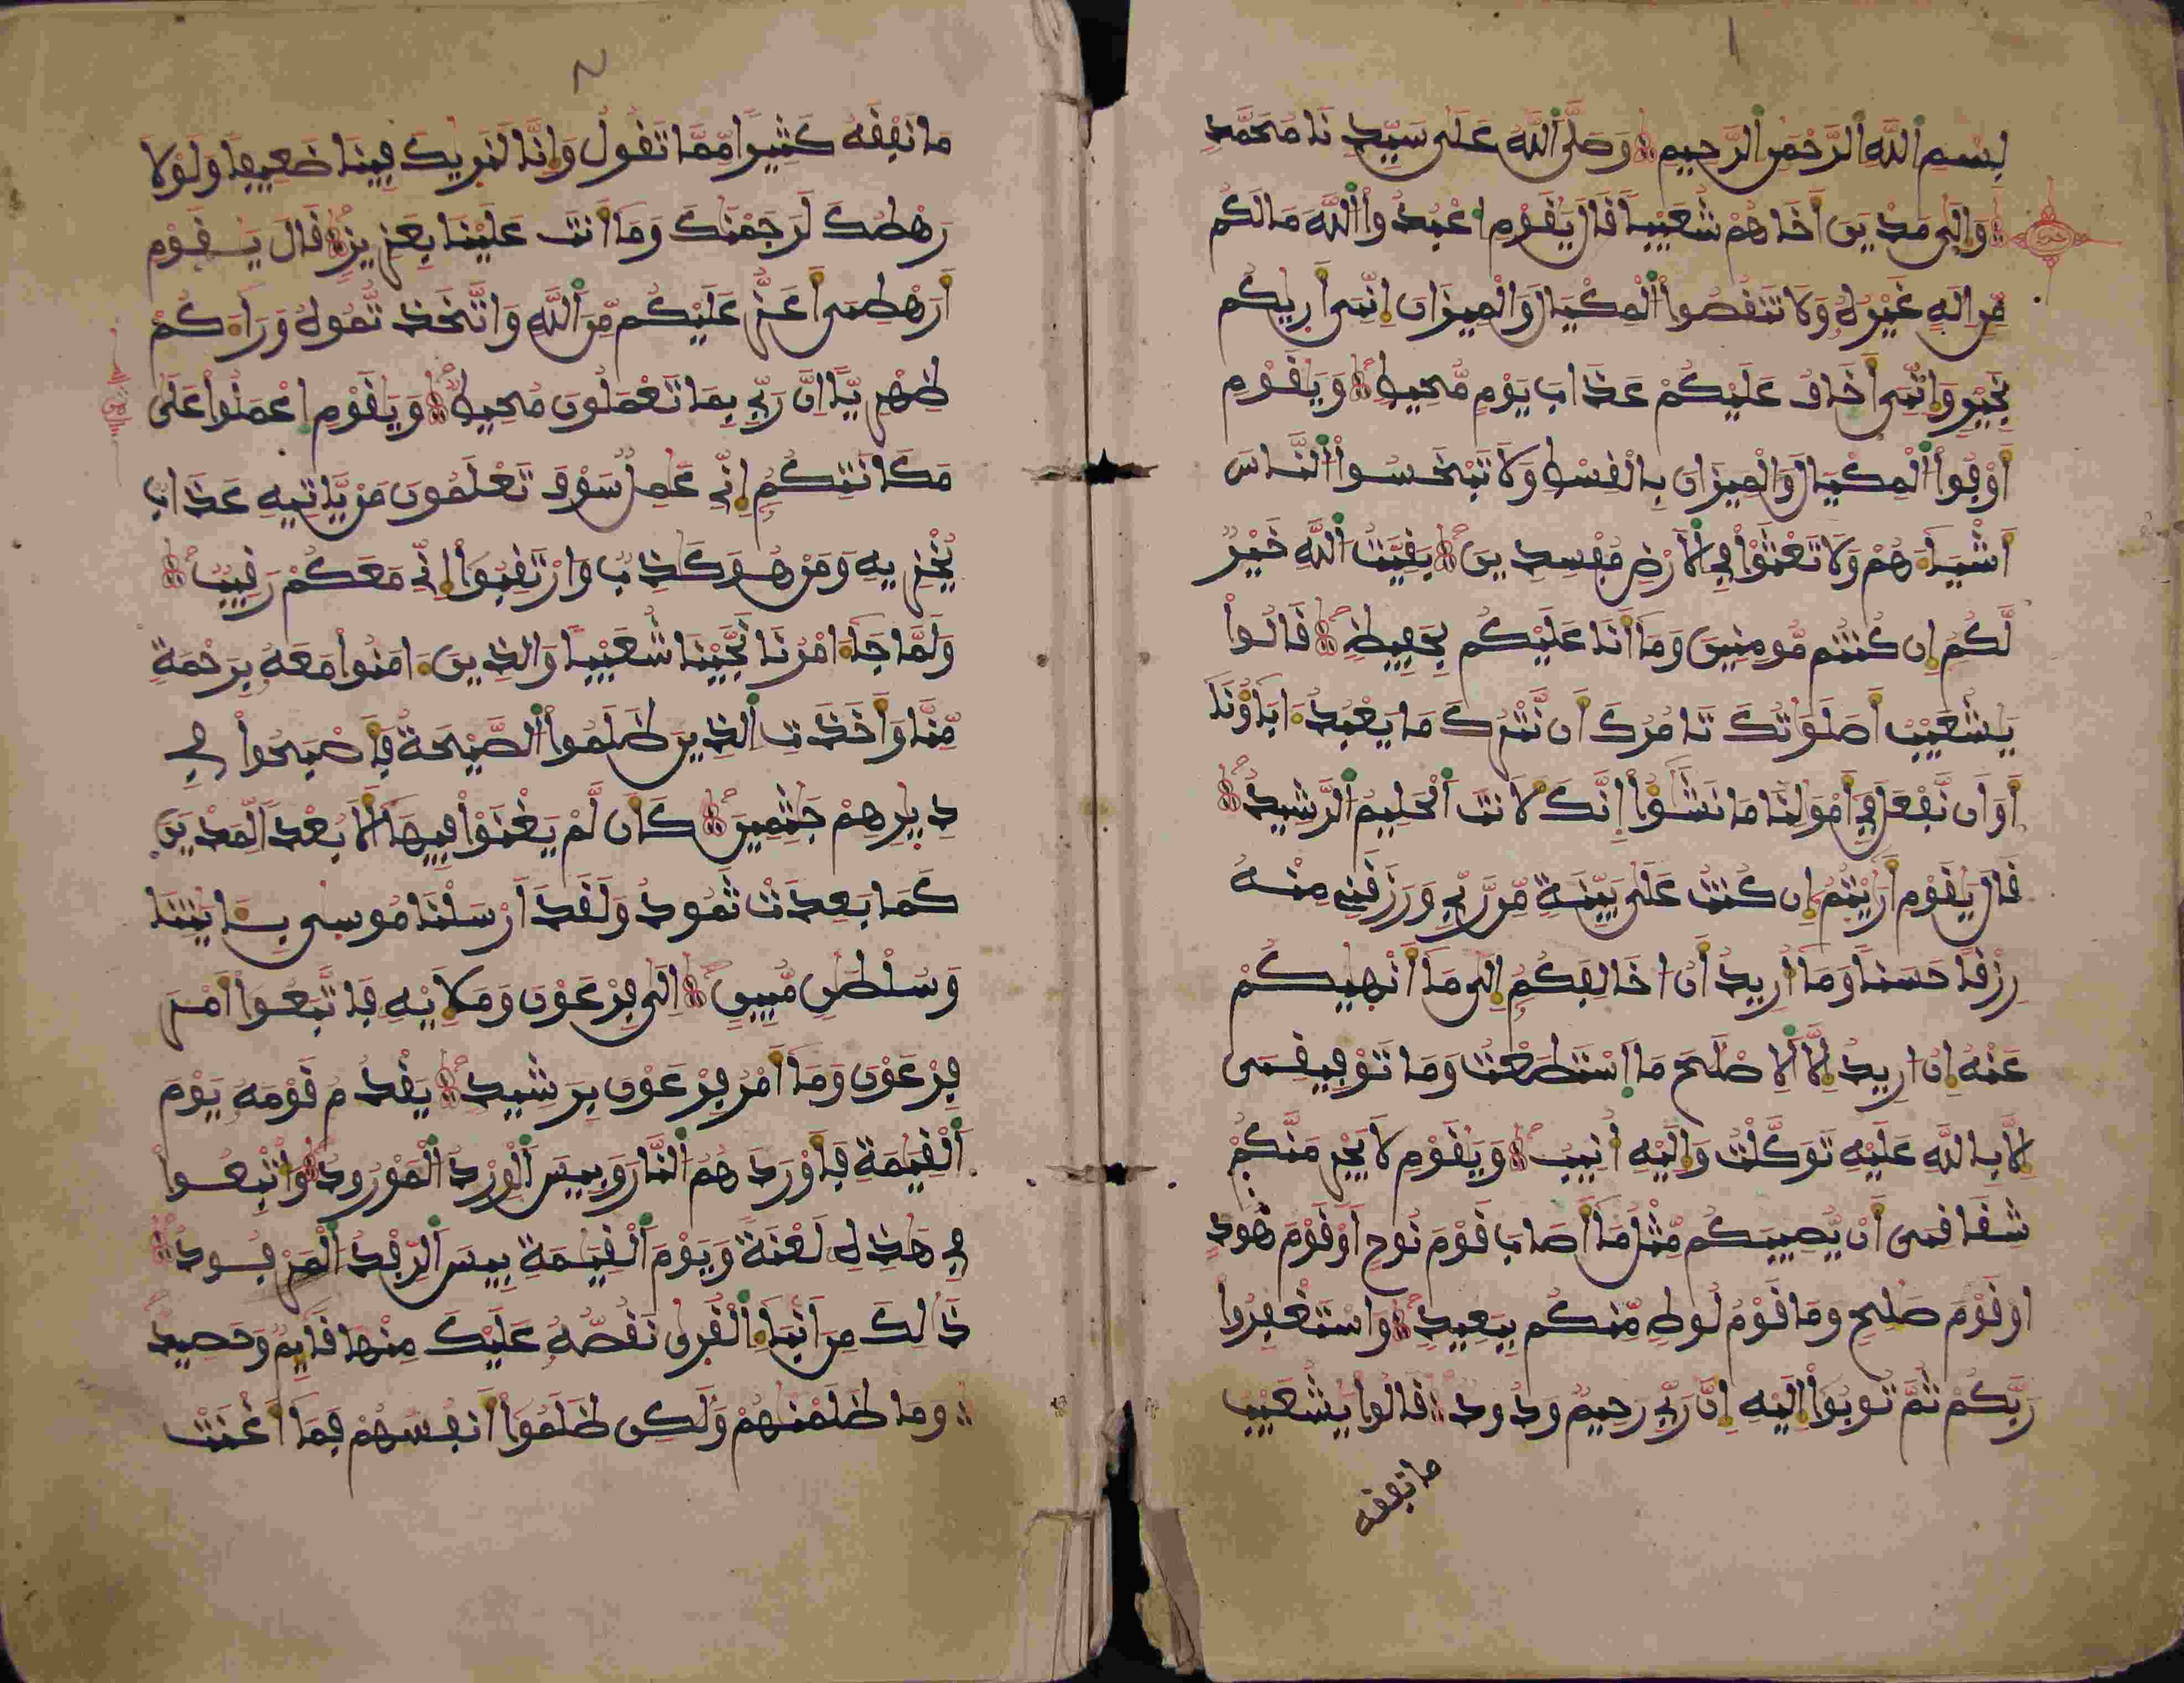 ١
بِسْمِ اللَّهِ الرَّحْمَٰنِ الرَّحِيمِ وَصَلَّى اللَّهُ عَلَى سَيِّدِنَا مُحَمَّدٍ
وَإِلَىٰ مَدْيَنَ أَخَاهُمْ شُعَيْبًا قَالَ يَٰقَوْمِ اعْبُدُوا اللَّهَ مَا لَكُم
مِّنِ إِلَٰهٍ غَيْرُهُ وَلَا تَنقُصُوا الْمِكْيَالَ وَالْمِيزَانَ إِنِّيَ أَرَىٰكُم
بِخَيْرٍ وَإِنِّيَ أَخَافُ عَلَيْكُمْ عَذَابَ يَوْمٍ مُّحِيطٍ وَيَٰقَوْمِ
أَوْفُوا الْمِكْيَالَ وَالْمِيزَانَ بِالْقِسْطِ وَلَا تَبْخَسُوا النَّاسَ
أَشْيَاءَهُمْ وَلَا تَعْثَوْا فِي الْأَرْضِ مُفْسِدِينَ بَقِيَّتُ اللَّهِ خَيْرٌ
لَّكُمُ إِن كُنتُم مُّومِنِينَ وَمَا أَنَا عَلَيْكُم بِحَفِيظٍ قَالُوا
يَٰشُعَيْبُ أَصَلَوَٰتُكَ تَامُرُكَ أَن نَّتْرُكَ مَا يَعْبُدُ ءَابَاؤُنَا
أَوَ أَن نَّفْعَلَ فِي أَمْوَٰلِنَا مَا نَشَٰؤُا إِنَّكَ لَأَنتَ الْحَلِيمُ الرَّشِيدُ
قَالَ يَٰقَوْمِ أَرَٰيْتُمُ إِن كُنتُ عَلَىٰ بَيِّنَةٍ مِّن رَّبِّي وَرَزَقَنِي مِنْهُ
رِزْقًا حَسَنًا وَمَا أُرِيدُ أَنُ أُخَالِفَكُمُ إِلَىٰ مَا أَنْهَىٰكُمْ
عَنْهُ إِنُ أُرِيدُ إِلَّا الْإِصْلَٰحَ مَا اسْتَطَعْتُ وَمَا تَوْفِيقِيَ
إِلَّا بِاللَّهِ عَلَيْهِ تَوَكَّلْتُ وَإِلَيْهِ أُنِيبُ وَيَٰقَوْمِ لَا يَجْرِمَنَّكُمْ
شِقَاقِيَ أَنْ يُّصِيبَكُم مِّثْلُ مَا أَصَابَ قَوْمَ نُوحٍ أَوْ قَوْمَ هُودٍ
أَوْ قَوْمَ صَٰلِحٍ وَمَا قَوْمُ لُوطٍ مِّنكُم بِبَعِيدٍ وَاسْتَغْفِرُوا
رَبَّكُمْ ثُمَّ تُوبُوا إِلَيْهِ إِنَّ رَبِّي رَحِيمٌ وَدُودٌ قَالُوا يَٰشُعَيْبُ
ما نفقه
٢
مَا نَفْقَهُ كَثِيرًا مِّمَّا تَقُولُ وَإِنَّا لَنَرَىٰكَ فِينَا ضَعِيفًا وَلَوْلَا
رَهْطُكَ لَرَجَمْنَٰكَ وَمَا أَنتَ عَلَيْنَا بِعَزِيزٍ قَالَ يَٰقَوْمِ
أَرَهْطِيَ أَعَزُّ عَلَيْكُم مِّنَ اللَّهِ وَاتَّخَذتُّمُوهُ وَرَاءَكُمْ
ظِهْرِيًّا إِنَّ رَبِّي بِمَا تَعْمَلُونَ مُحِيطٌ وَيَٰقَوْمِ اعْمَلُوا عَلَىٰ
مَكَانَتِكُمُ إِنِّي عَٰمِلٌ سَوْفَ تَعْلَمُونَ مَنْ يَّاتِيهِ عَذَابٌ
يُخْزِيهِ وَمَنْ هُوَ كَٰذِبٌ وَارْتَقِبُوا إِنِّي مَعَكُمْ رَقِيبٌ
وَلَمَّا جَاءَ امْرُنَا نَجَّيْنَا شُعَيْبًا وَالَّذِينَ ءَامَنُوا مَعَهُ بِرَحْمَةٍ
مِّنَّا وَأَخَذَتِ الَّذِينَ ظَلَمُوا الصَّيْحَةُ فَأَصْبَحُوا فِي
دِيَٰرِهِمْ جَٰثِمِينَ كَأَن لَّمْ يَغْنَوْا فِيهَا أَلَا بُعْدًا لِّمَدْيَنَ
كَمَا بَعِدَتْ ثَمُودُ وَلَقَدَ أَرْسَلْنَا مُوسَىٰ بِـَٔايَٰتِنَا
وَسُلْطَٰنٍ مُّبِينٍ إِلَىٰ فِرْعَوْنَ وَمَلَإِيْهِ فَاتَّبَعُوا أَمْرَ
فِرْعَوْنَ وَمَا أَمْرُ فِرْعَوْنَ بِرَشِيدٍ يَقْدُمُ قَوْمَهُ يَوْمَ
الْقِيَٰمَةِ فَأَوْرَدَهُمُ النَّارَ وَبِيسَ الْوِرْدُ الْمَوْرُودُ وَأُتْبِعُوا
فِي هَٰذِهِ لَعْنَةً وَيَوْمَ الْقِيَٰمَةِ بِيسَ الرِّفْدُ الْمَرْفُودُ
ذَٰلِكَ مِنَ أَنبَاءِ الْقُرَىٰ نَقُصُّهُ عَلَيْكَ مِنْهَا قَائِمٌ وَحَصِيدٌ
وَمَا ظَلَمْنَٰهُمْ وَلَٰكِن ظَلَمُوا أَنفُسَهُمْ فَمَا أَغْنَتْ